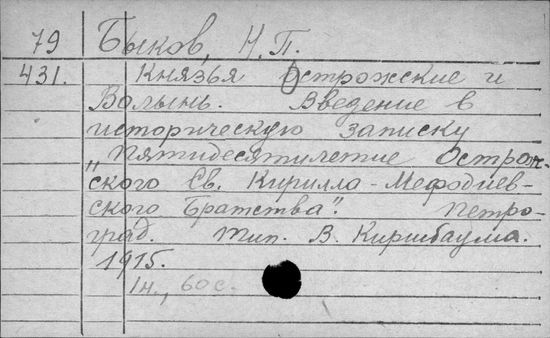 79 Быков, Н.П.
431. Князья Острожские и
Волынь. Введение в
историческую записку
„Пятидесятилетие Острож-
ского Св. Кирилло-Мефодиев-
ского Братства". Петро-
град. Тип. В. Киршбаума.
1915.
1н., 60 с.